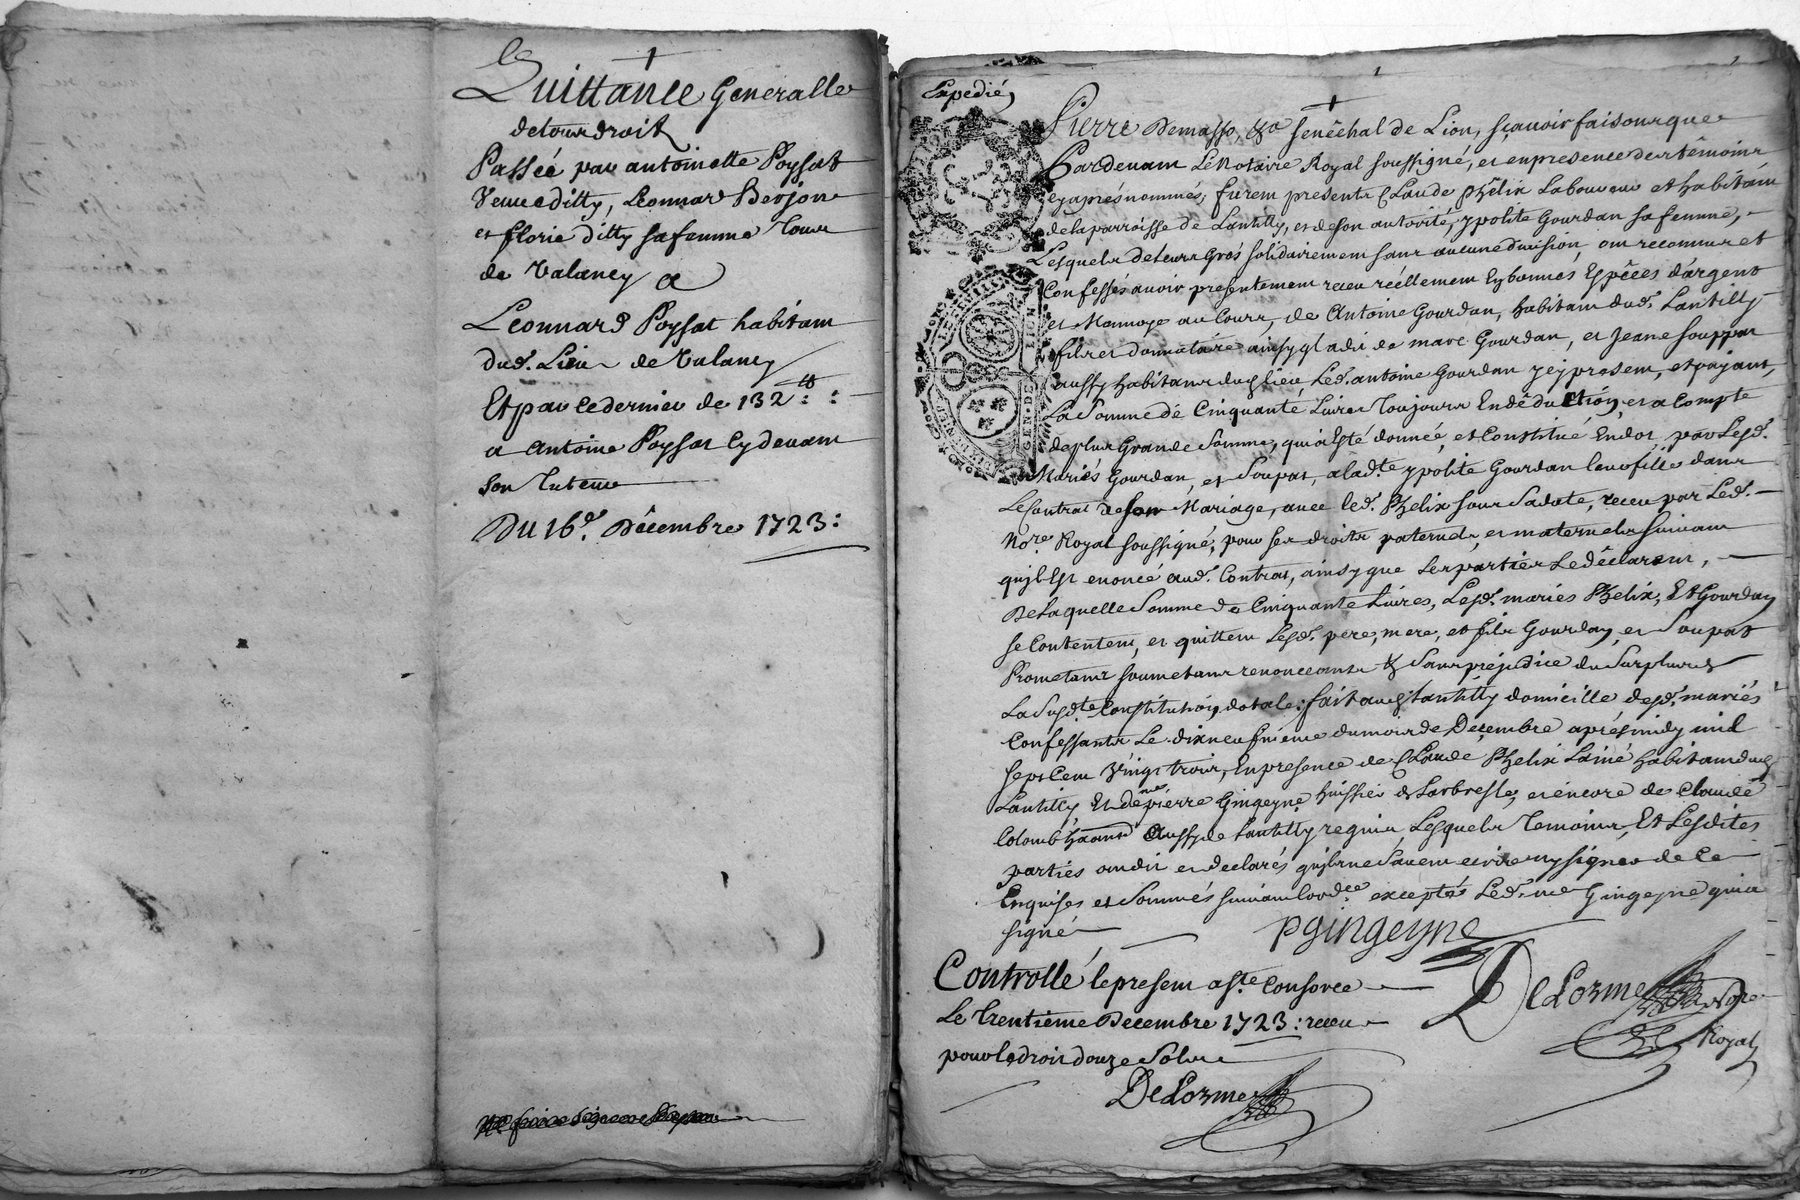 Quittance Generalle
de tous droits
Passée par antoinette Poysat
Veuve ditty, Leonnard Berjon
et florie ditty sa femme Tous
de Valancy a
Leonnard Poysat habitant
dud. Lieu de Valancy
Et par ce dernier de 132 ₶ :
a Antoine Poysat Cy devant
son Tuteur
Du 16e. Décembre 1723 :
Expedié
Pierre Demasso, &a senêchal de Lion, sçavoir faisons que
Pardevant Le Notaire Royal soussigné, et en presence des têmoins
cy aprés nommés, furent presents Claude Phélix Laboureur et habitant
de la parroisse de Lantilly, et de son autorité, ypolite Gourdan sa femme,
Lesquels de leurs grés solidairement sans aucune division, ont reconnus et
Confessés avoir presentement receu réellement En bonnes Espêces d'argent
et Monnoye au Cours, de Antoine Gourdan, habitant dud. Lantilly
fils et donnataire ainsy ql a dit de marc Gourdan, et Jeane Souppat
aussy habitans dud lieu, Led. antoine Gourdan y cy present, et payant,
La Somme de Cinquante Livres Toujours En dêduction, et a Compte
de plus Grande Somme, qui a Esté donnée, et Constitué En dot, par Lesd.
Mariés Gourdan, et Soupat, a lad.te ypolite Gourdan leur fille dans
Le Contrat de son Mariage, avec led. Phelix sous sa date, receu par Led.
No.re Royal soussigné, pour ses droits paternels, et maternels suivant
qu'il Est enoncé aud. Contrat, ainsy que Les parties Le dêclarent,
De Laquelle Somme de Cinquante Livres, Lesd. mariés Phelix, Et Gourdan
se Contentent, et quittent Lesd. pere, mere, et fils Gourdan, et Soupat
Prometans soumetans renonceants & Sans préjudice du Surplus de
La Susd.te Constitution dotale : fait aud Lantilly domicille desd. mariés
Confessants Le dixneufvieme du mois de Decembre aprés midy mil
sept Cent Vingt trois, En presence de Claude Phelix Lainé habitant dud
Lantilly Et de me pierre Gingeyne huissier de Larbresle, et encore de Claude
Colomb aussy de Lantilly requis, Lesquels Temoins, Et Lesdites
parties ont dit et declarés qu'ils ne Sçavent ecrire ny signer de Ce
Enquises et Sommés suivant l'ord.ce exceptés Led. me Gingeyne qui a
signé
P Gingeyne
DeLorme Nore
Royal
Controllé le present aste Consorce
Le Trentième Decembre 1723 : receu
pour le droit douze Sols
DeLorme